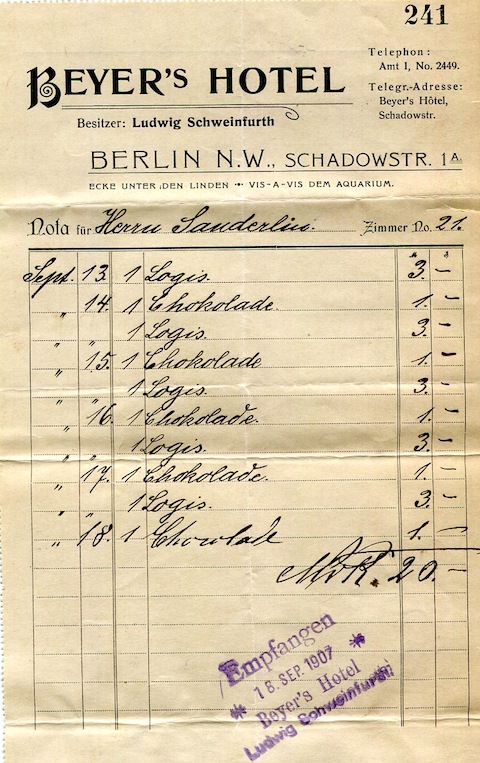 241
Telephon:
Amt I, No. 2449.
Telegr.-Adresse:
Beyer's Hôtel,
Schadowstr.
BEYER'S HOTEL
Besitzer: Ludwig Schweinfurth
BERLIN N.W., SCHADOWSTR. 1A.
ECKE UNTER DEN LINDEN VIS-A-VIS DEM AQUARIUM.
Nota für Herrn Sanderlin. Zimmer No. 21.
Sept. 13 1 Logis. 3. –
" 14. 1 Chokolade. 1. –
" " 1 Logis. 3. –
" 15. 1 Chokolade 1. –
" " 1 Logis. 3. –
" 16. 1 Chokolade. 1. –
" " 1 Logis. 3. –
" 17. 1 Chokolade. 1. –
" " 1 Logis. 3. –
" 18. 1 Chocolade 1. –
Mk. 20. –
Empfangen
* 18. SEP. 1907 *
Beyer's Hotel
Ludwig Schweinfurth